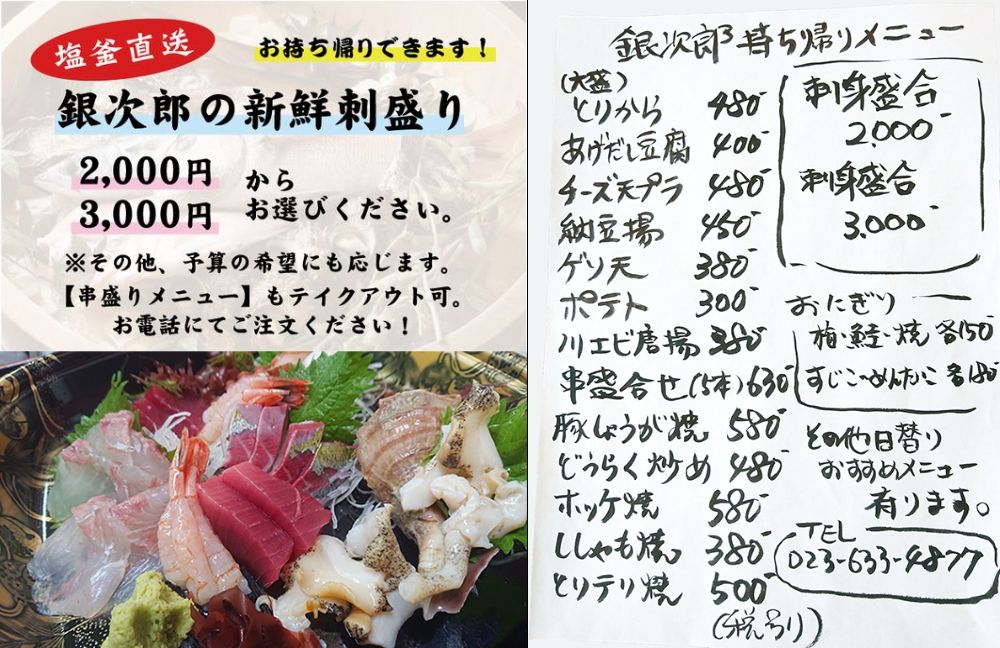 塩釜直送
お持ち帰りできます！
銀次郎の新鮮刺盛り
2,000円
3,000円
から
お選びください。
※その他、予算の希望にも応じます。
【串盛りメニュー】もテイクアウト可。
お電話にてご注文ください！
銀次郎 持ち帰りメニュー
(大盛)
とりから 480-
あげだし豆腐 400-
チーズ天プラ 480-
納豆揚 450-
ゲソ天 380-
ポテト 300-
川エビ唐揚 380-
串盛合せ(5本) 630-
豚しょうが焼 580-
どうらく炒め 480-
ホッケ焼 580-
ししゃも焼 380-
とりテリ焼 500-
刺身盛合
2.000-
刺身盛合
3.000-
おにぎり
梅・鮭・焼 各150
すじこ・めんたこ 各180-
その他日替り
おすすめメニュー
有ります。
TEL
023-633-4877